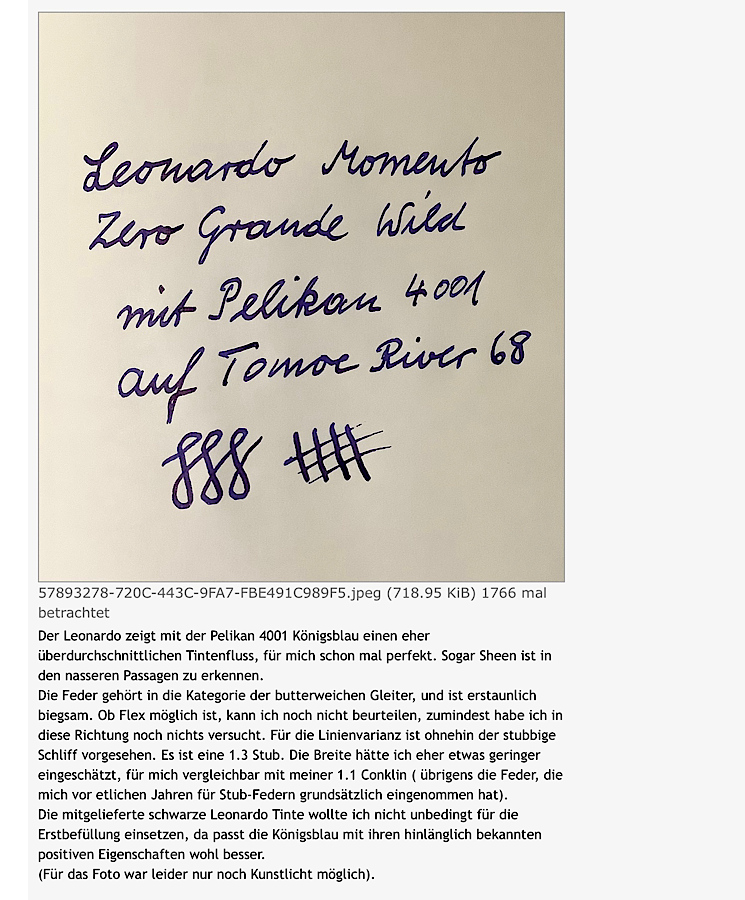 Leonardo Momento
Zero Grande Wild
mit Pelikan 4001
auf Tomoe River 68
57893278-720C-443C-9FA7-FBE491C989F5.jpeg (718.95 KiB) 1766 mal
betrachtet
Der Leonardo zeigt mit der Pelikan 4001 Königsblau einen eher
überdurchschnittlichen Tintenfluss, für mich schon mal perfekt. Sogar Sheen ist in
den nasseren Passagen zu erkennen.
Die Feder gehört in die Kategorie der butterweichen Gleiter, und ist erstaunlich
biegsam. Ob Flex möglich ist, kann ich noch nicht beurteilen, zumindest habe ich in
diese Richtung noch nichts versucht. Für die Linienvarianz ist ohnehin der stubbige
Schliff vorgesehen. Es ist eine 1.3 Stub. Die Breite hätte ich eher etwas geringer
eingeschätzt, für mich vergleichbar mit meiner 1.1 Conklin ( übrigens die Feder, die
mich vor etlichen Jahren für Stub-Federn grundsätzlich eingenommen hat).
Die mitgelieferte schwarze Leonardo Tinte wollte ich nicht unbedingt für die
Erstbefüllung einsetzen, da passt die Königsblau mit ihren hinlänglich bekannten
positiven Eigenschaften wohl besser.
(Für das Foto war leider nur noch Kunstlicht möglich).